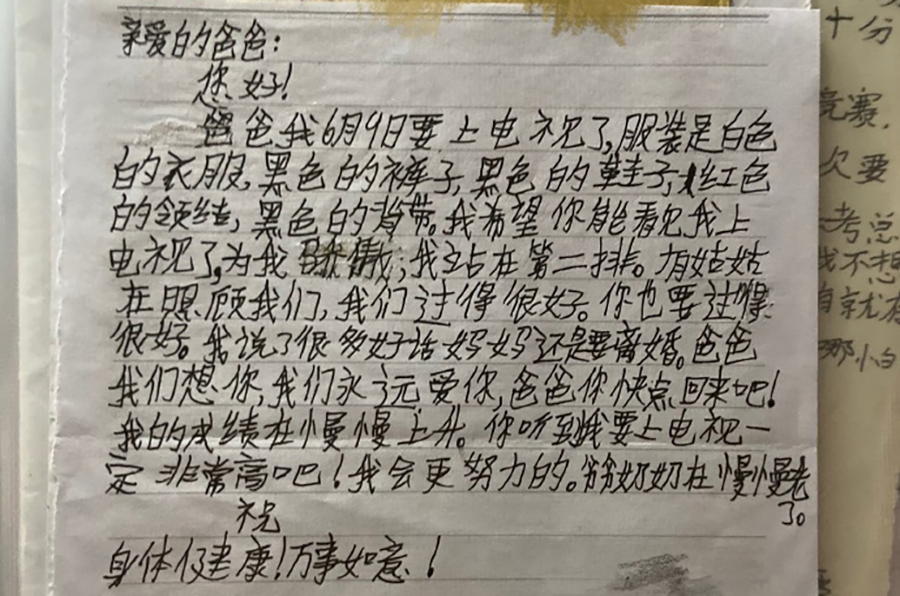 亲爱的爸爸：
您好！
爸爸,我6月9日要上电视了,服装是白色
的衣服,黑色的裤子,黑色的鞋子,红色
的领结,黑色的背带。我希望你能看见我上
电视了,为我骄傲；我站在第二排。有姑姑
在照顾我们,我们过得很好。你也要过得
很好。我说了很多好话妈妈还是要离婚。爸爸
我们想你,我们永远爱你,爸爸你快点回来吧！
我的成绩在慢慢上升。你听到我要上电视一
定非常高吧！我会更努力的。爷爷奶奶在慢慢老
了。
祝
身体健康！万事如意！
十分
竞赛,
欠要
考总
我不想
就有
那小白